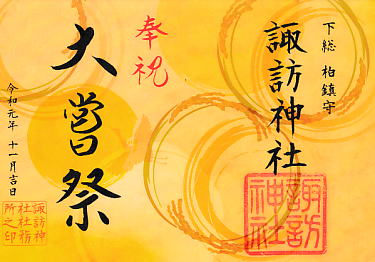 下総 柏鎮守
諏訪神社
奉祝
大嘗祭
令和元年 十一月吉日
諏訪神社
諏訪神
社社務
所之印